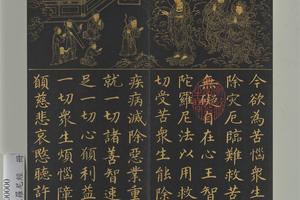 今欲為苦惱衆生
除灾厄臨難救苦
無礙自在心王智
陀羅尼法以用救
切受苦衆生能除
疾病滅除惡業重
就一切諸善智速
足一切心願利益
一切衆生煩惱障
願慈悲哀愍聽許
羅尼經